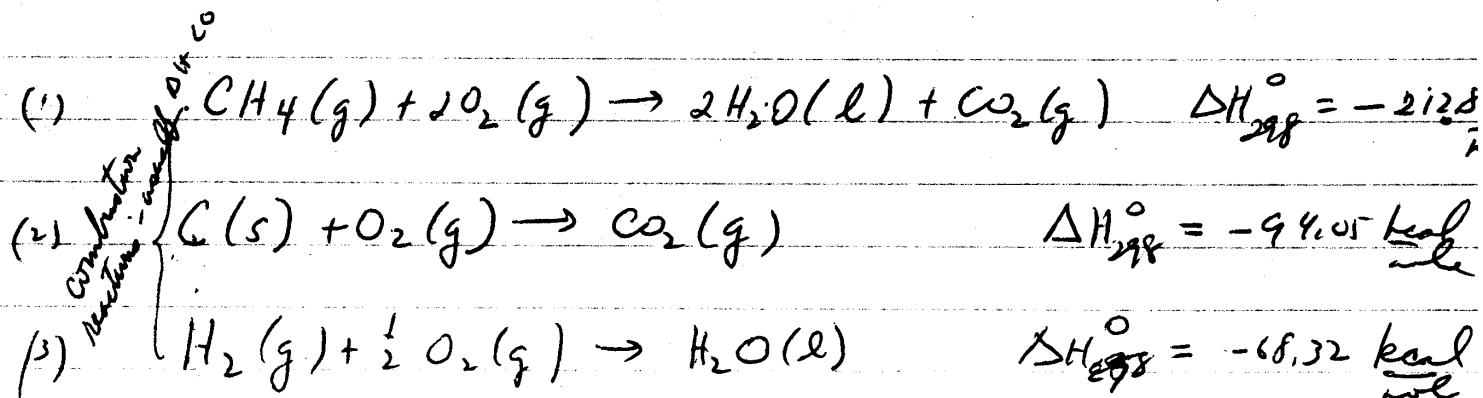 combustion reactions - usually ΔH < 0
(1) CH4(g) + 2O₂(g) → 2H₂O(l) + CO₂(g) ΔH°₂₉₈ = -212.8
(2) C(s) + O₂(g) → CO₂(g) ΔH°₂₉₈ = -94.05 kcal/mole
(3) H₂(g) + ½ O₂(g) → H₂O(l) ΔH°₂₉₈ = -68.32 kcal/mol